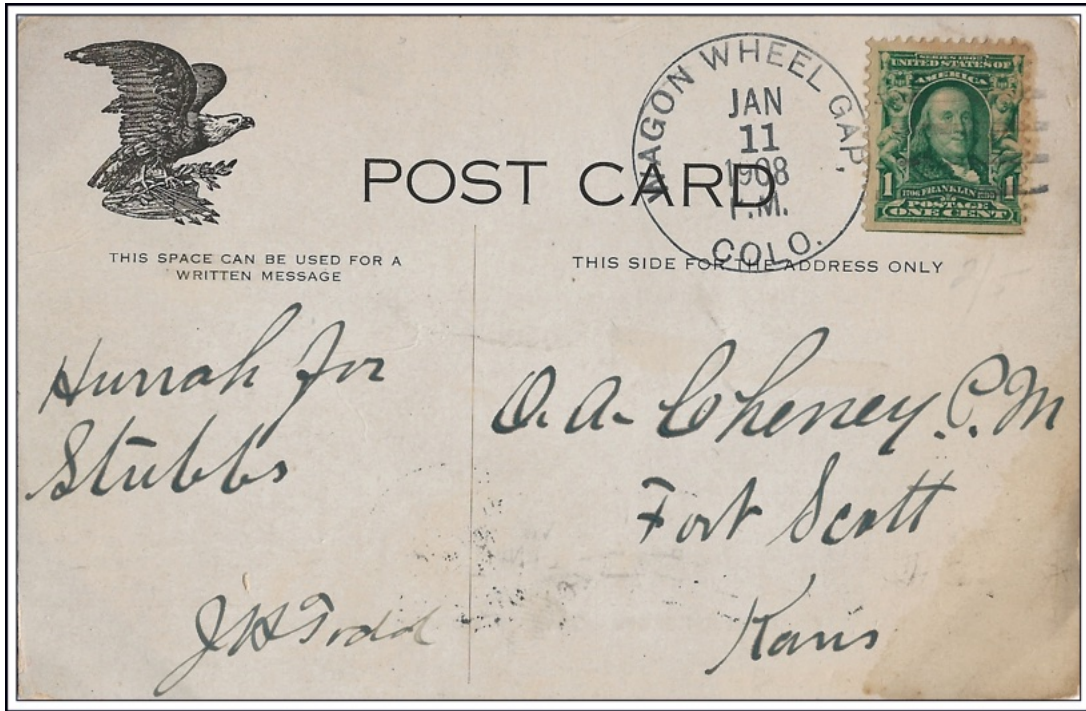 WAGON WHEEL GAP,
JAN
11
1908
P.M.
COLO.
SERIES 1902
UNITED STATES OF
AMERICA
1 1706 FRANKLIN 1790 1
POSTAGE
ONE CENT
POST CARD
THIS SPACE CAN BE USED FOR A
WRITTEN MESSAGE
THIS SIDE FOR THE ADDRESS ONLY
Hurrah for
Stubbs
J H Todd
O. A. Cheney. P. M
Fort Scott
Kans